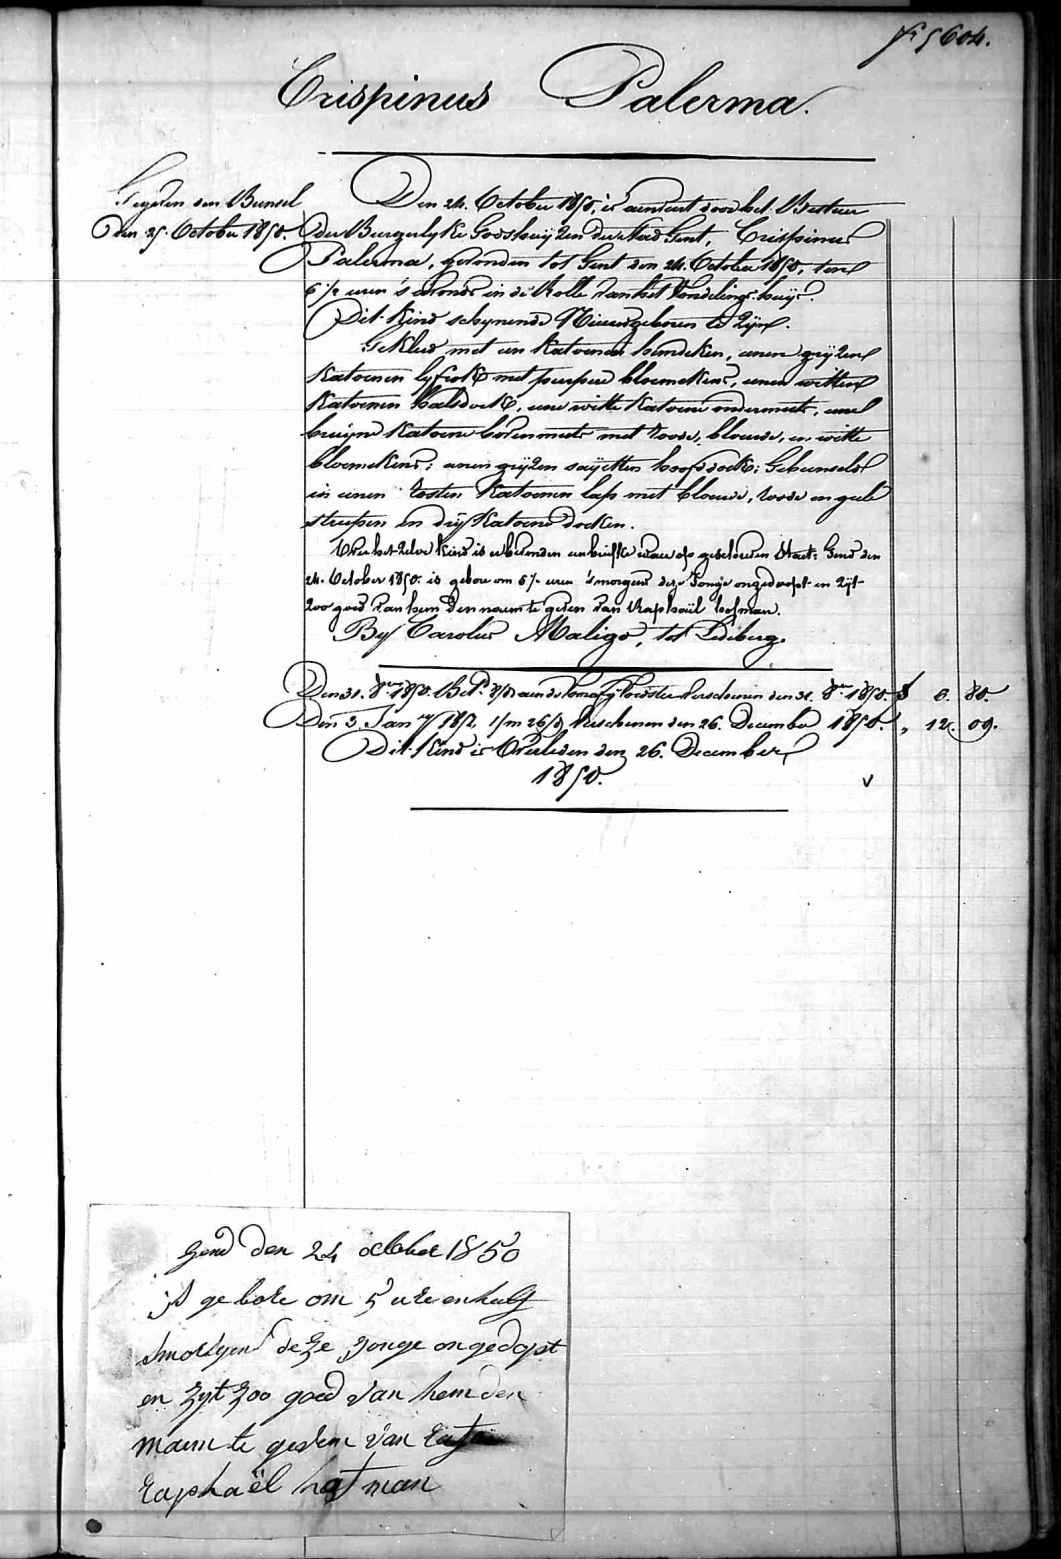 5604.
Crispinus Palerma.
Gegeven den Bunsel
Den 25. October 1850.
Den 24. October 1850, is aenveirt door het Bestuer
der Burgerlyke Godshuijzen der stad Gent, Crispinus
Palerma, gevonden tot Gent den 24. October 1850, ten
6 ½ uren 's avonds in de Rolle van het Vondelings-huijs.
Dit Kind schynende Nieuwgeboren te Zijn.
Gekleed met een katoenen hemdeken, eenen grijzen
katoenen lyfrok met purpere bloemekens, eenen witten
katoenen halsdoek, eene witte katoene ondermuts, eene
bruijne katoene bovenmuts met roode, blouwe, en witte
bloemekens; eenen grijzen saijetten hoofddoek; Gebunseld
in eenen rosten katoenen lap met blouwe, roode en geele
streepen en drij katoene doeken.
Over het zelve kind is bevonden een briefke waer op geschreven staet: Gend den
24. October 1850. is gebore om 5 ½ uren 'smorgens deze Jonge ongedoopt en Zijt
Zoo goed van hem den naem te geven van Raphaël hofman.
By Carolus Maligo, tot Ledeberg.
Den 31. 8bre 1850. Bet. aen de voedster verschenen den 31. 8bre 1850. 0. 80.
Den 3. Jany 1851. 26 verschenen den 26. December 1850. " 12. 09.
Dit Kind is Overleden den 26. December
1850.
v
gend den 24 october 1850
is gebore om 5 ure en half
smorgens deze jonge ongedopt
en zyt zoo goed van hem den
naem te geven van
raphaël hofman